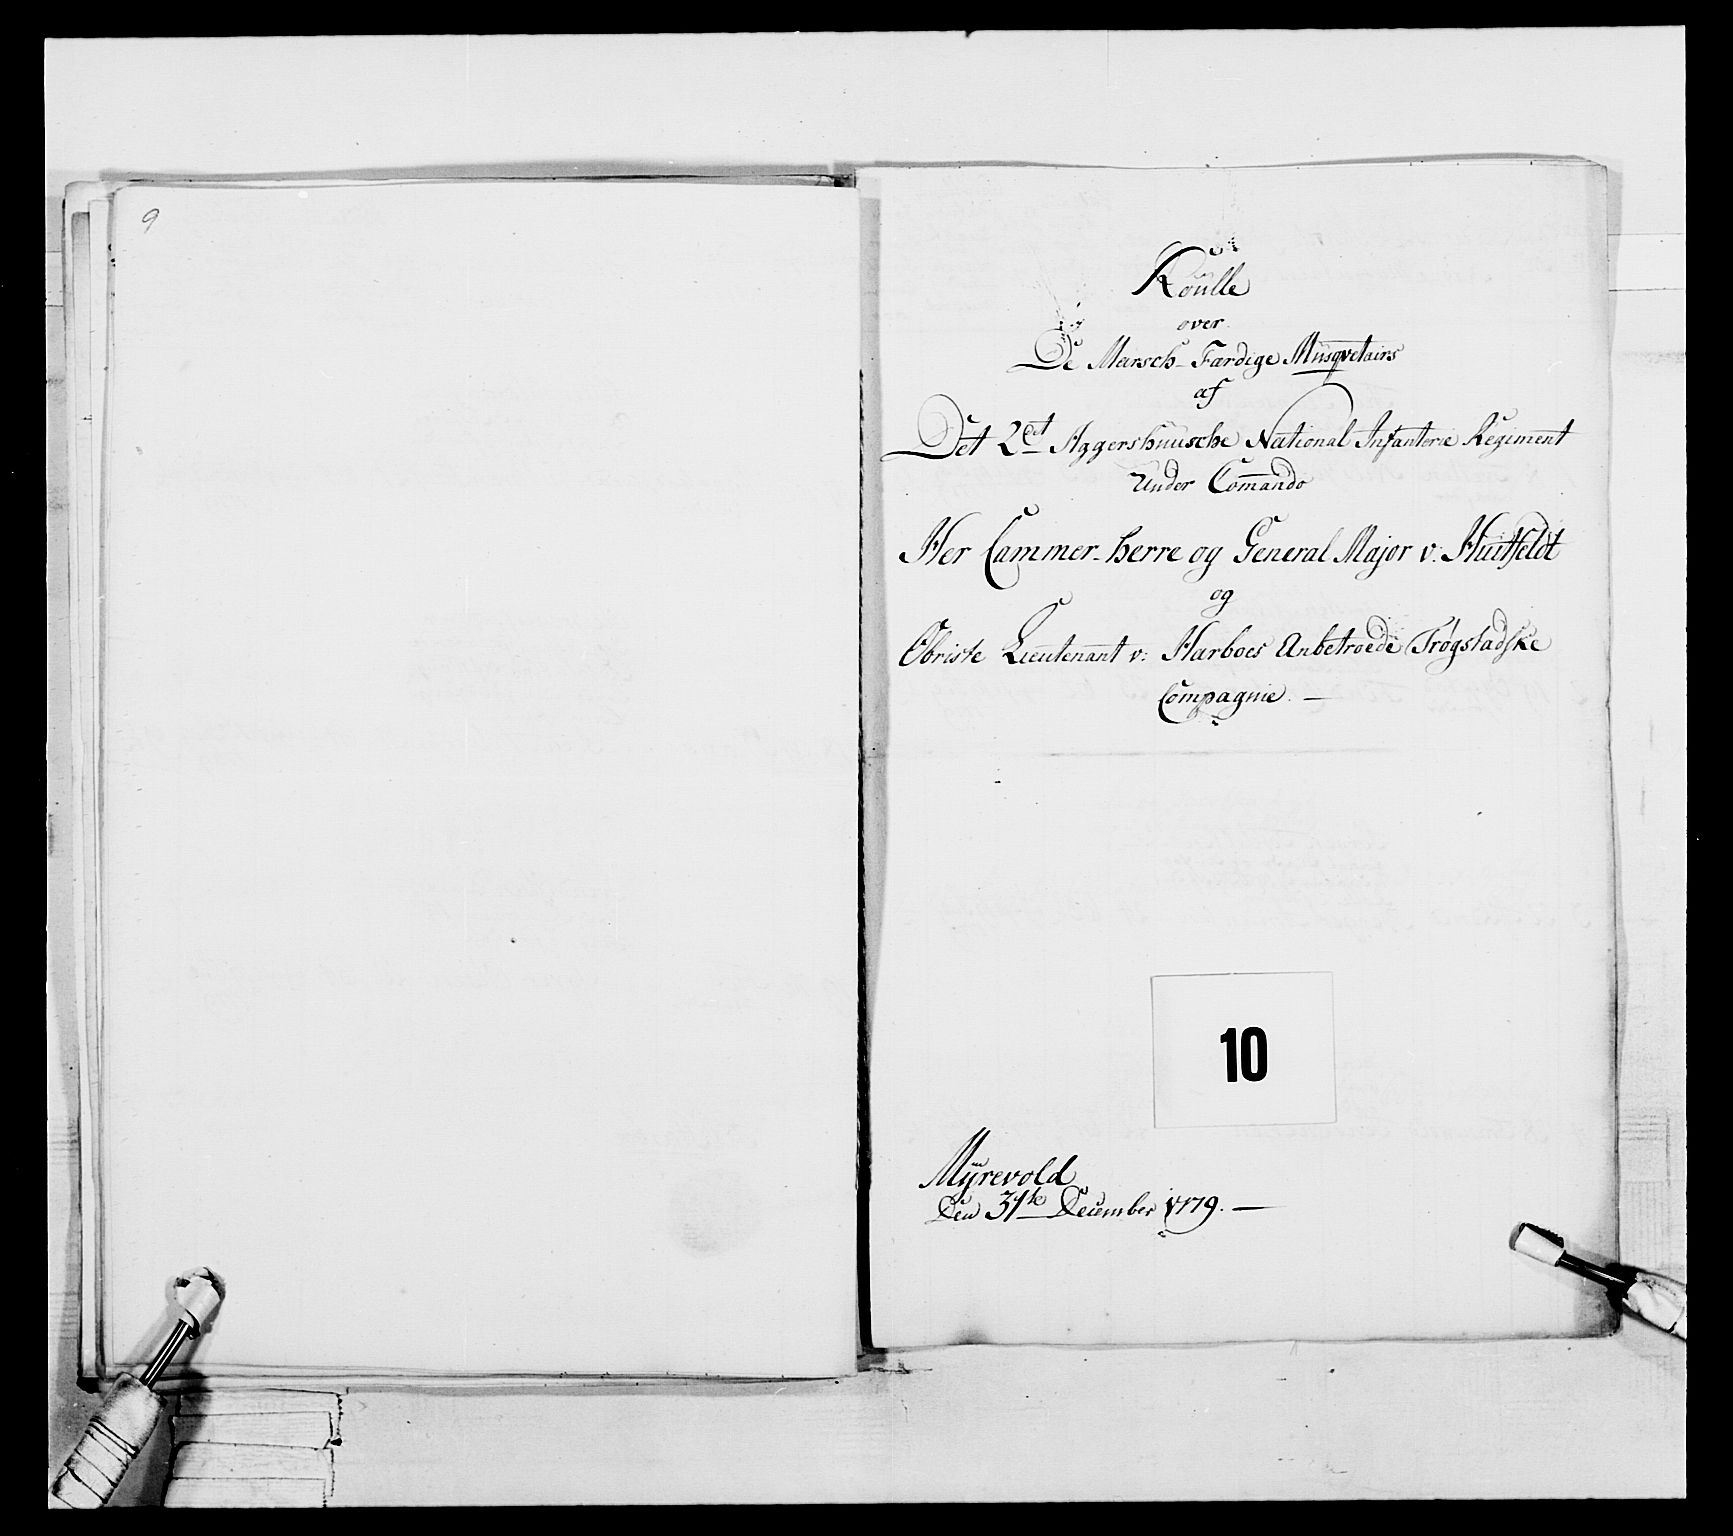 9
Roulle
over
De Marsch-Færdige Musqvetairs
af
Det 2det Aggershuusche National Infanterie Regiment
Under Comando
Her Cammer-herre og General Major v: Huitfeldt
og
Obriste Lieutenant v: Harboes Anbetroede Trøgstadske
Compagnie. —
10
Myrevold
Den 31te December 1779. —